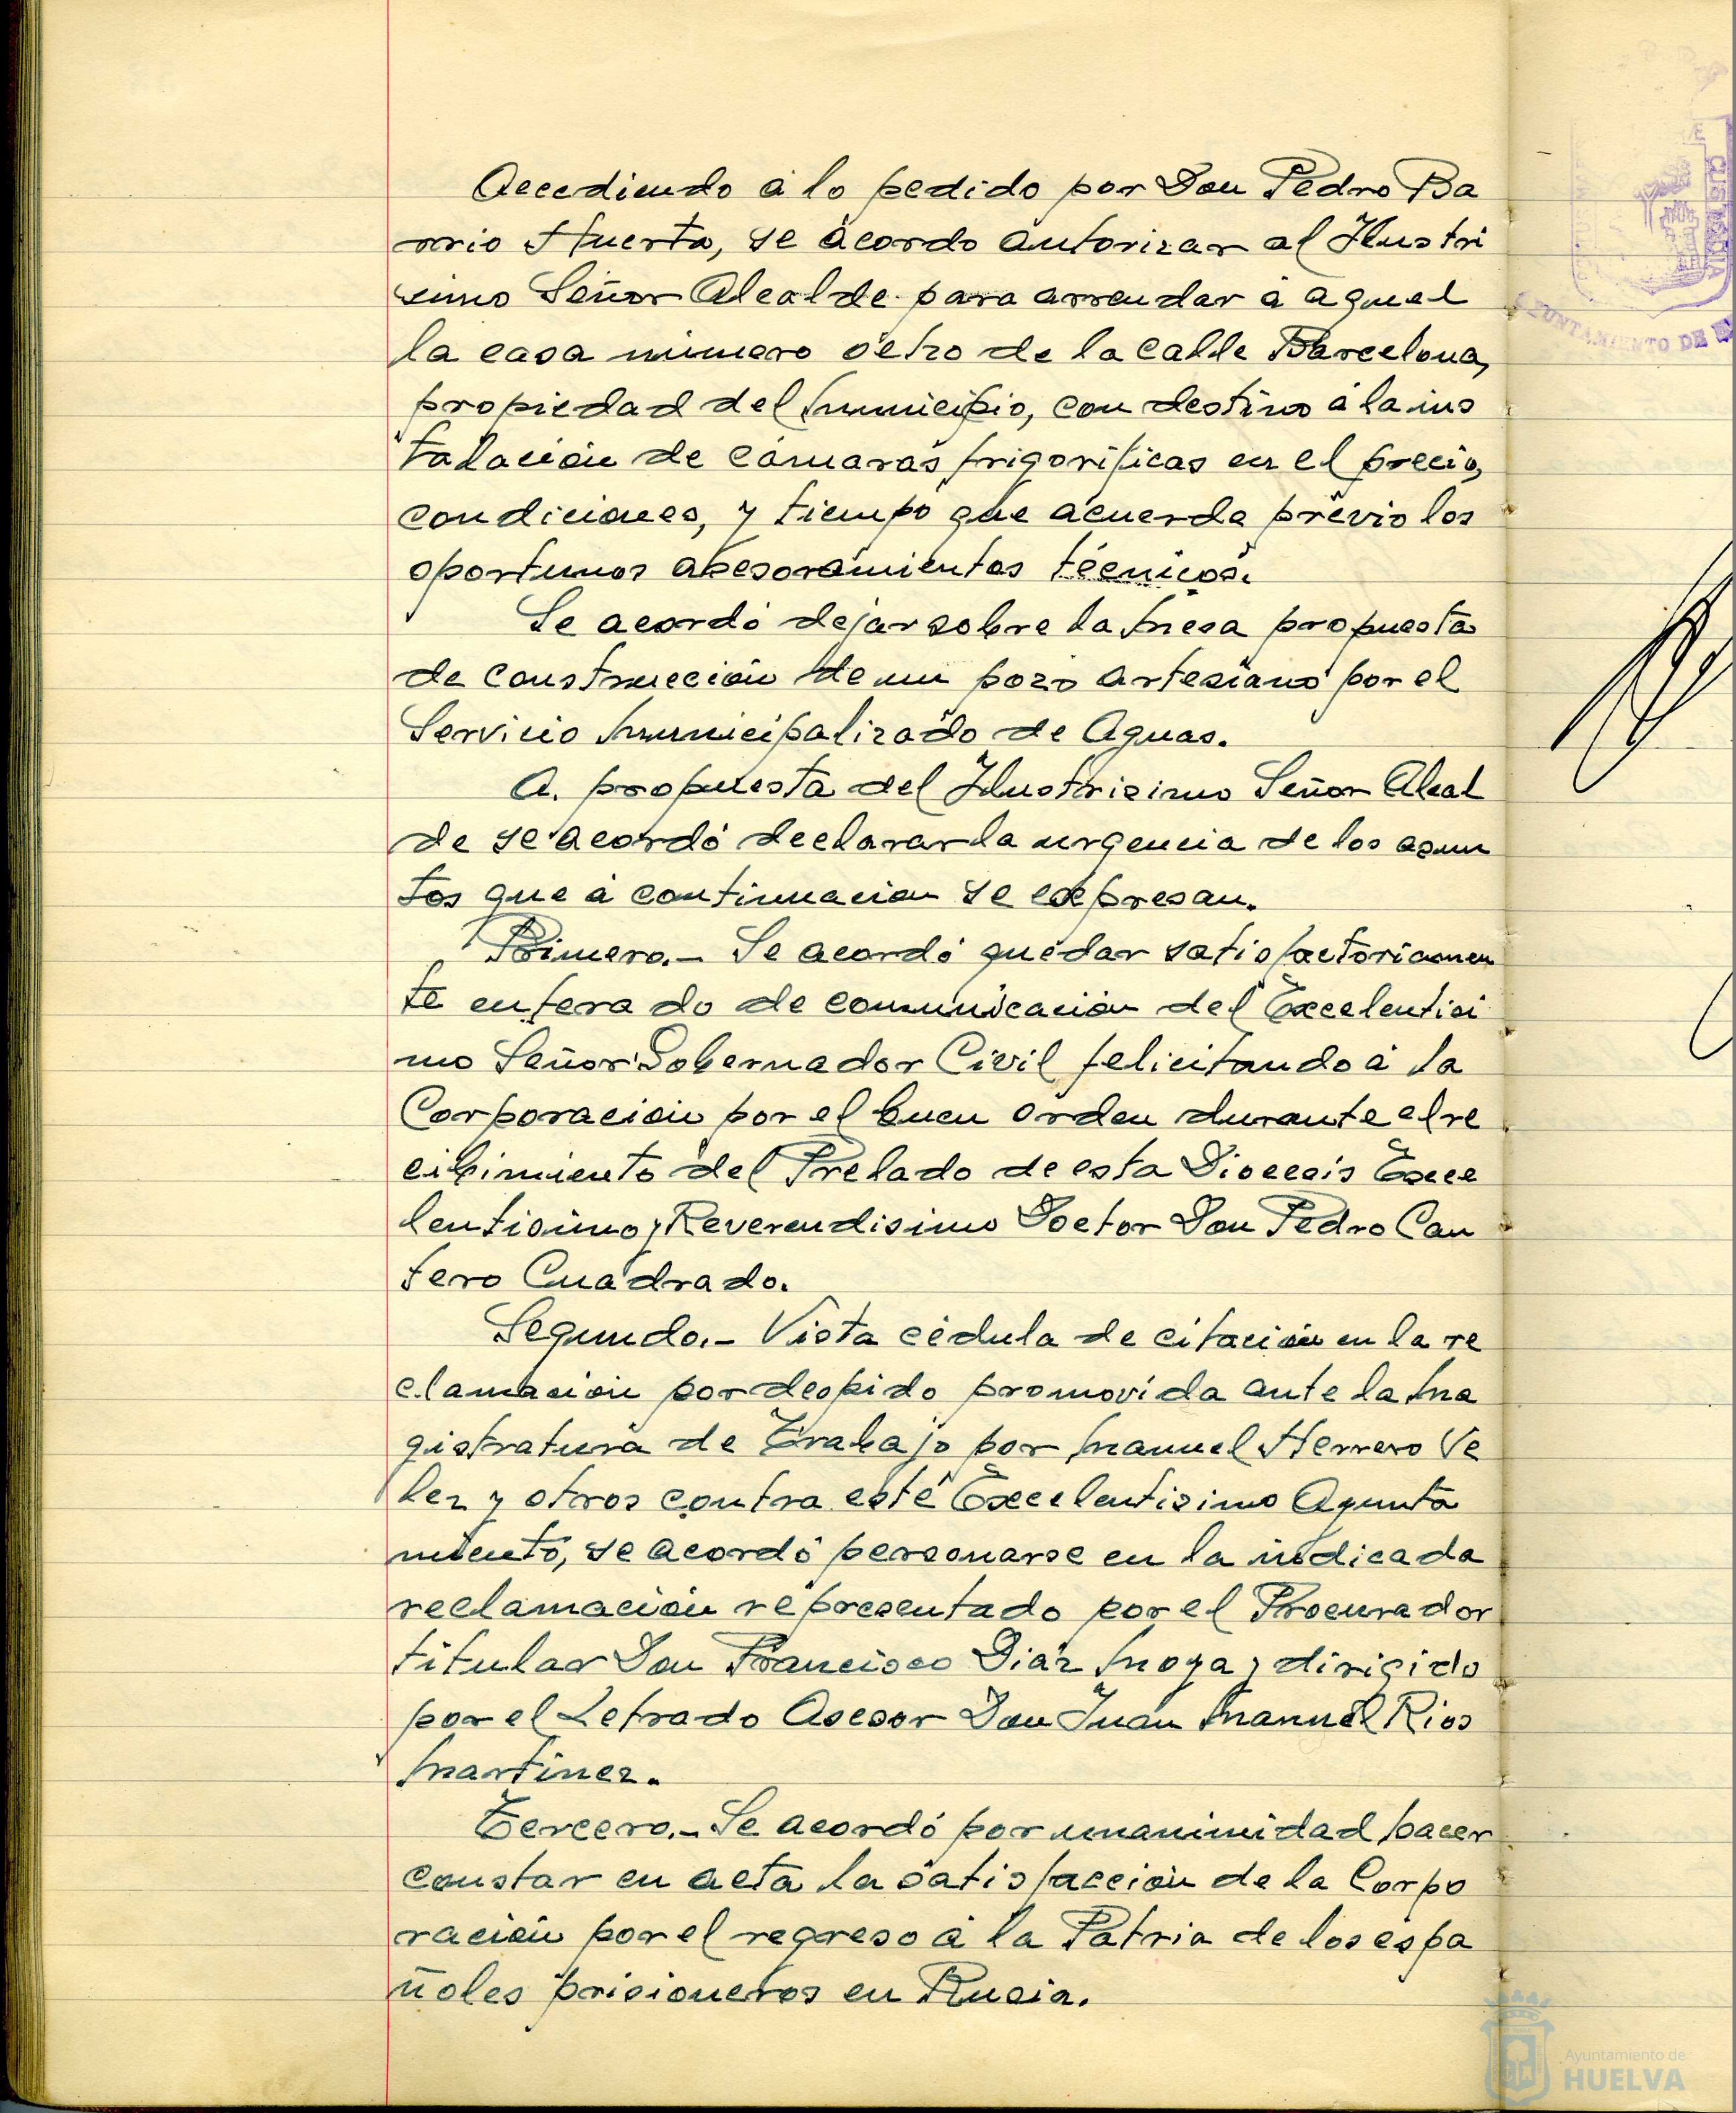 Accediendo á lo pedido por Don Pedro Ba
rrio Huerta, se acordo autorizar al Ilustri
simo Señor Alcalde para arrendar á aquel
la casa número ocho de la calle Barcelona,
propiedad del Municipio, con destino á la ins
talación de cámaras frigoríficas en el precio,
condiciones, y tiempo que acuerda previo los
oportunos asesoramientos técnicos.
Se acordó dejar sobre la Mesa propuesta
de construcción de un pozo artesiano por el
Servicio Municipalizado de Aguas.
A. propuesta del Ilustrisimo Señor Alcal
de se acordó declarar la urgencia de los asun
tos que á continuacion se expresan.
Primero.- Se acordó quedar satisfactoriamen
te enterado de comunicación del Excelentisi
mo Señor Gobernador Civil felicitando á la
Corporación por el buen orden durante el re
cibimiento del Prelado de esta Diocesis Exce
lentisimo y Reverendisimo Doctor Don Pedro Can
tero Cuadrado.
Segundo.- Vista cédula de citación en la re
clamación por despido promovida ante la Ma
gistratura de Trabajo por Manuel Herrero Ve
lez y otros contra este Excelentisimo Ayunta
miento, se acordó personarse en la indicada
reclamación representado por el Procurador
titular Don Francisco Diáz Moya y dirigido
por el Letrado Asesor Don Juan Manuel Rios
Martinez.
Tercero.- Se acordó por unanimidad hacer
constar en acta la satisfacción de la Corpo
ración por el regreso á la Patria de los espa
ñoles prisioneros en Rusia.
AYUNTAMIENTO DE
CUSTODIA
Ayuntamiento de
HUELVA